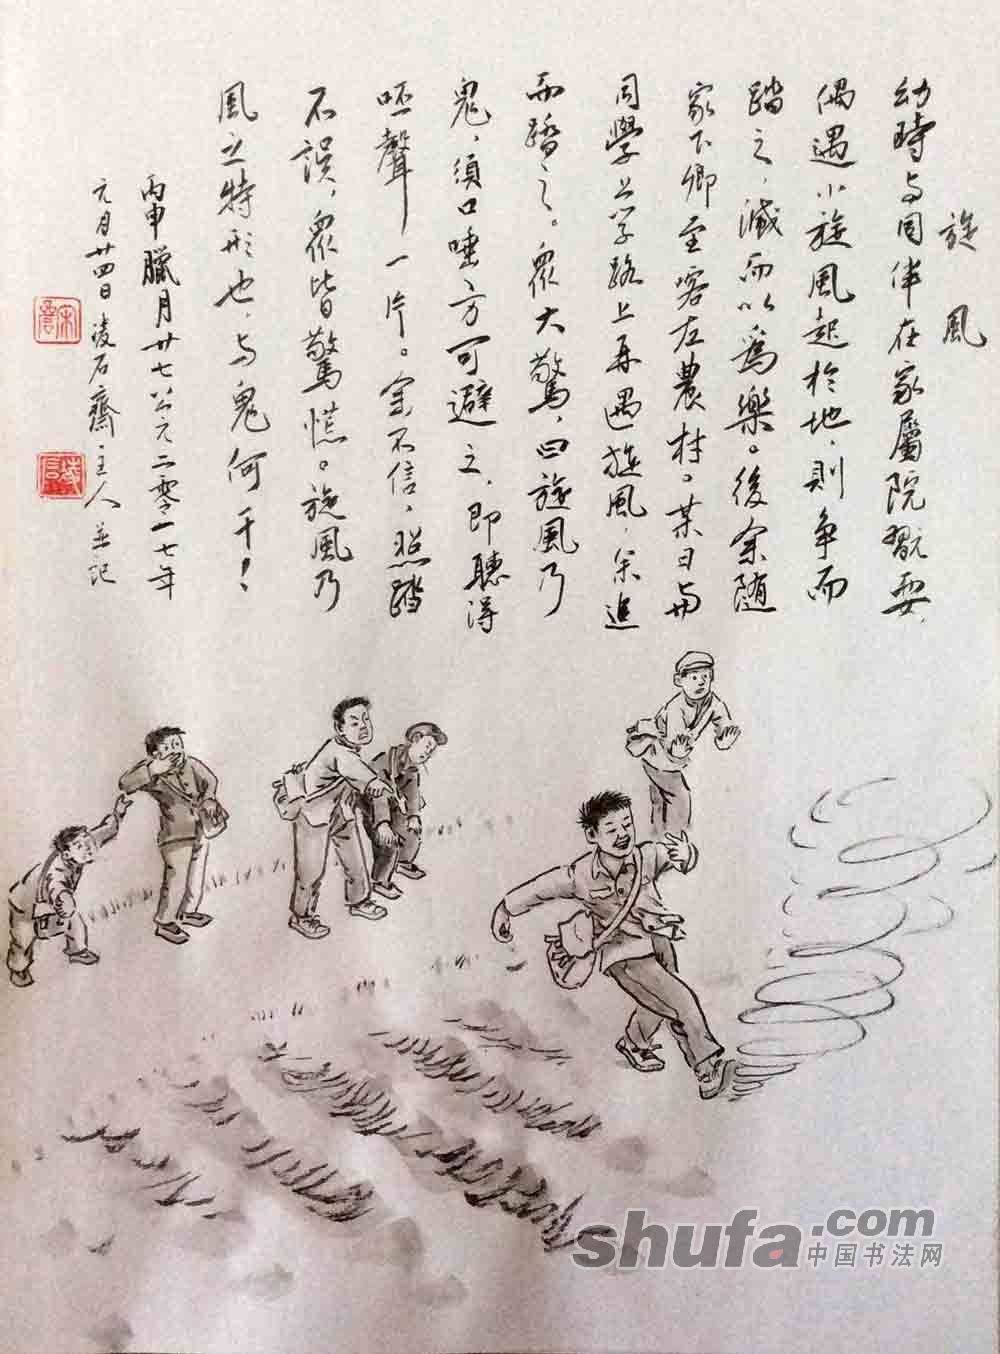 旋風
幼時与同伴在家屬院翫耍，
偶遇小旋風起於地，則争而
踏之，滅而以爲樂。後余随
家下鄉至喀左農村。某日与
同學上学路上再遇旋風，余進
而踏之。衆大驚，曰旋風乃
鬼，須口唾方可避之，即聽得
呸聲一片。余不信，照踏
不誤，衆皆驚慌。旋風乃
風之特形也，与鬼何干！
丙申臘月廿七公元二零一七年
元月廿四日凌石齋主人并記
shufa.com
中国书法网